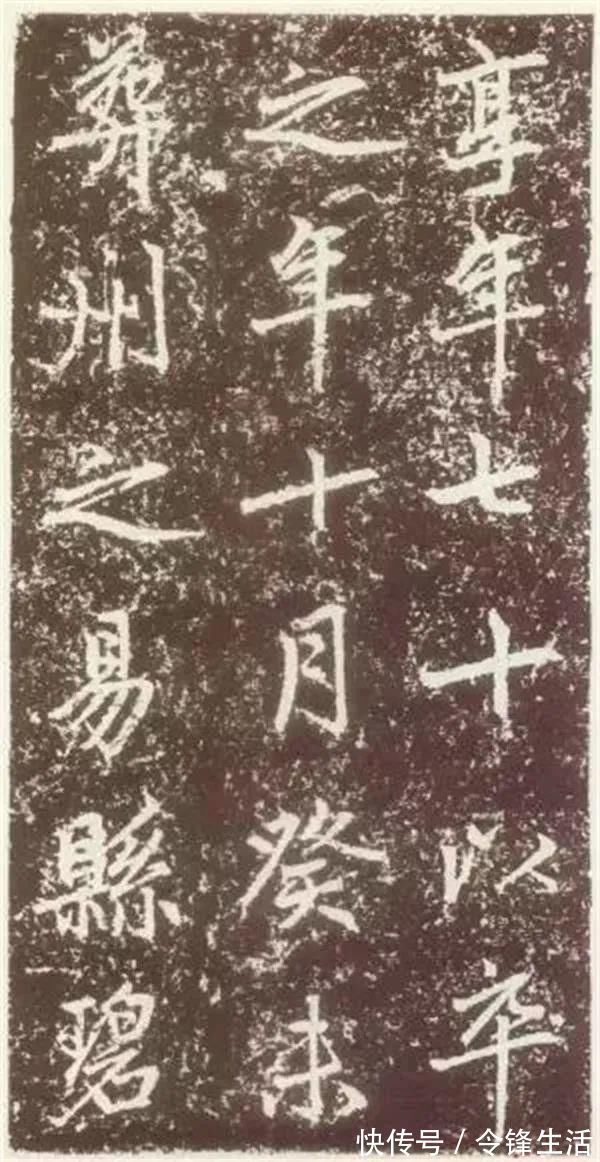 享年七十以卒
之年十月癸未
葬州之易縣碧
快传号/令锋生活